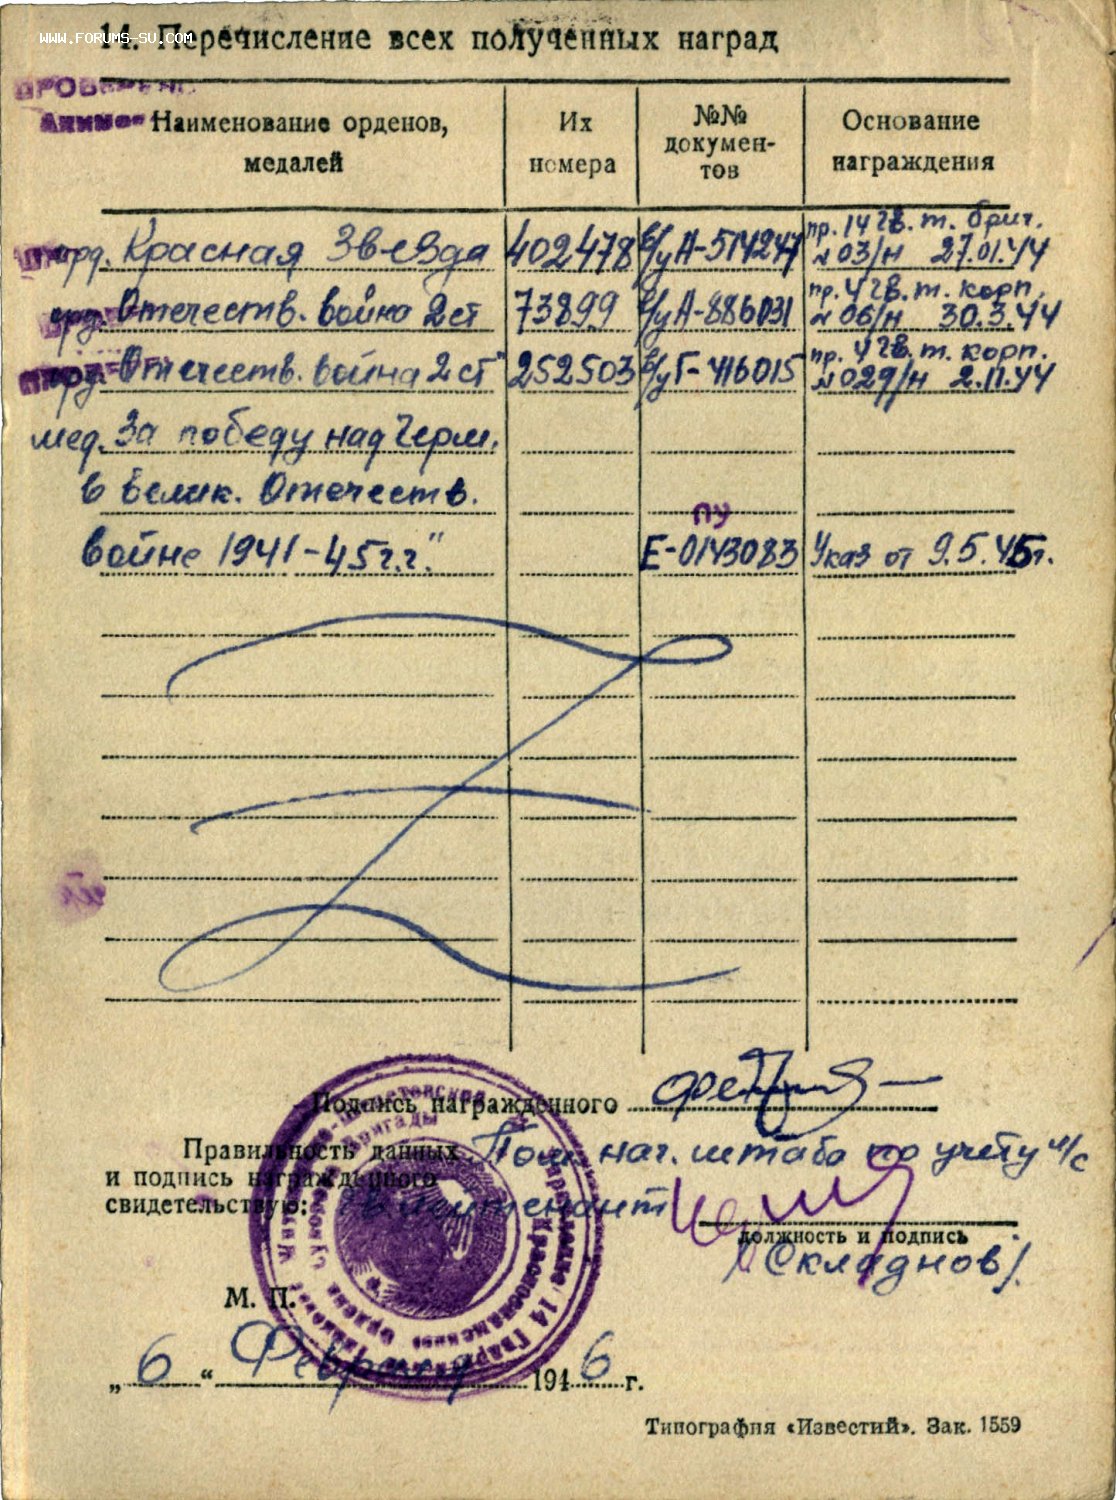 14. Перечисление всех полученных наград
www.forums-su.com
ПРОВЕРЕНО
Наименование орденов, медалей
Их номера
№№ документов
Основание награждения
орд. Красная Звезда 402478 в/у А-514247 пр. 14 гв. т. бриг. № 03/н 27.01.44
орд. Отечеств. война 2 ст 73899 в/у А-886031 пр. 4 гв. т. корп. № 06/н 30.3.44
орд. Отечеств. война 2 ст" 252503 в/у Г-416015 пр. 4 гв. т. корп. № 029/н 2.11.44
мед. За победу над Герм.
в велик. Отечеств.
ПУ
войне 1941-45 г.г." Е-0143083 Указ от 9.5.45г.
Подпись награжденного
Правильность данных Пом. нач. штаба по учету л/с
и подпись награжденного
свидетельствую: лейтенант
должность и подпись
/Складнов/.
М. П.
„6“ Февраля 1946 г.
Типография «Известий». Зак. 1559